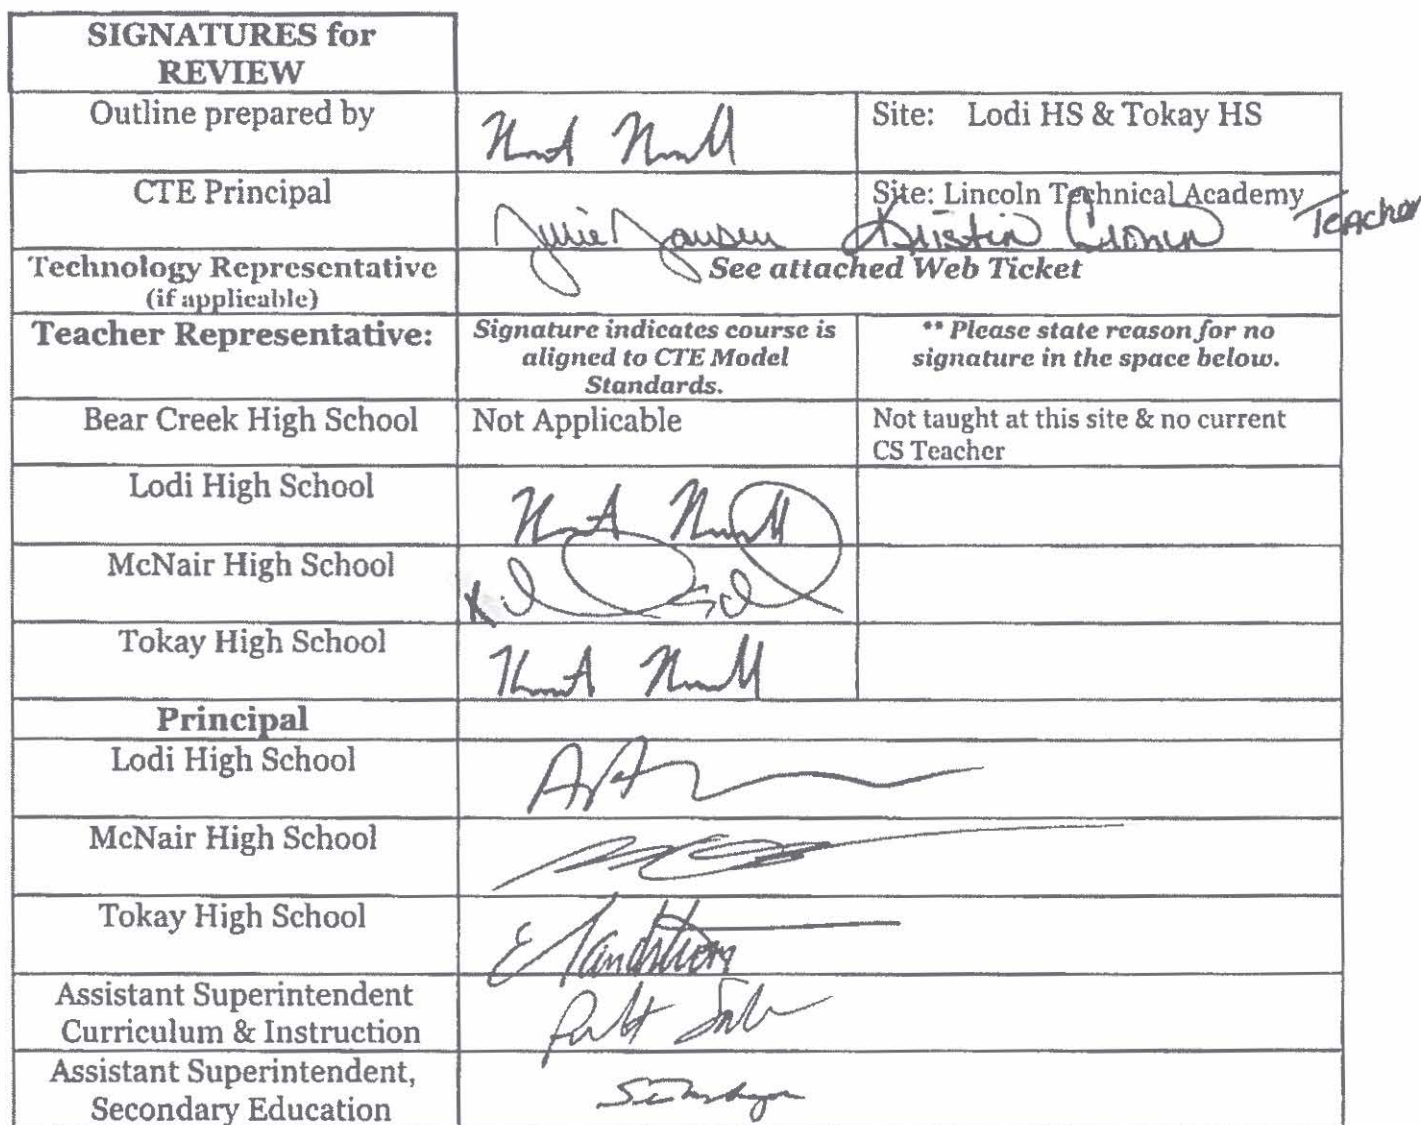 SIGNATURES for
REVIEW
Outline prepared by
Site: Lodi HS & Tokay HS
CTE Principal
Site: Lincoln Technical Academy
Julie Jansen Kristin Cronin Teacher
Technology Representative
(if applicable)
See attached Web Ticket
Teacher Representative:
Signature indicates course is
aligned to CTE Model
Standards.
** Please state reason for no
signature in the space below.
Bear Creek High School
Not Applicable
Not taught at this site & no current
CS Teacher
Lodi High School
McNair High School
Tokay High School
Principal
Lodi High School
McNair High School
Tokay High School
Assistant Superintendent
Curriculum & Instruction
Assistant Superintendent,
Secondary Education